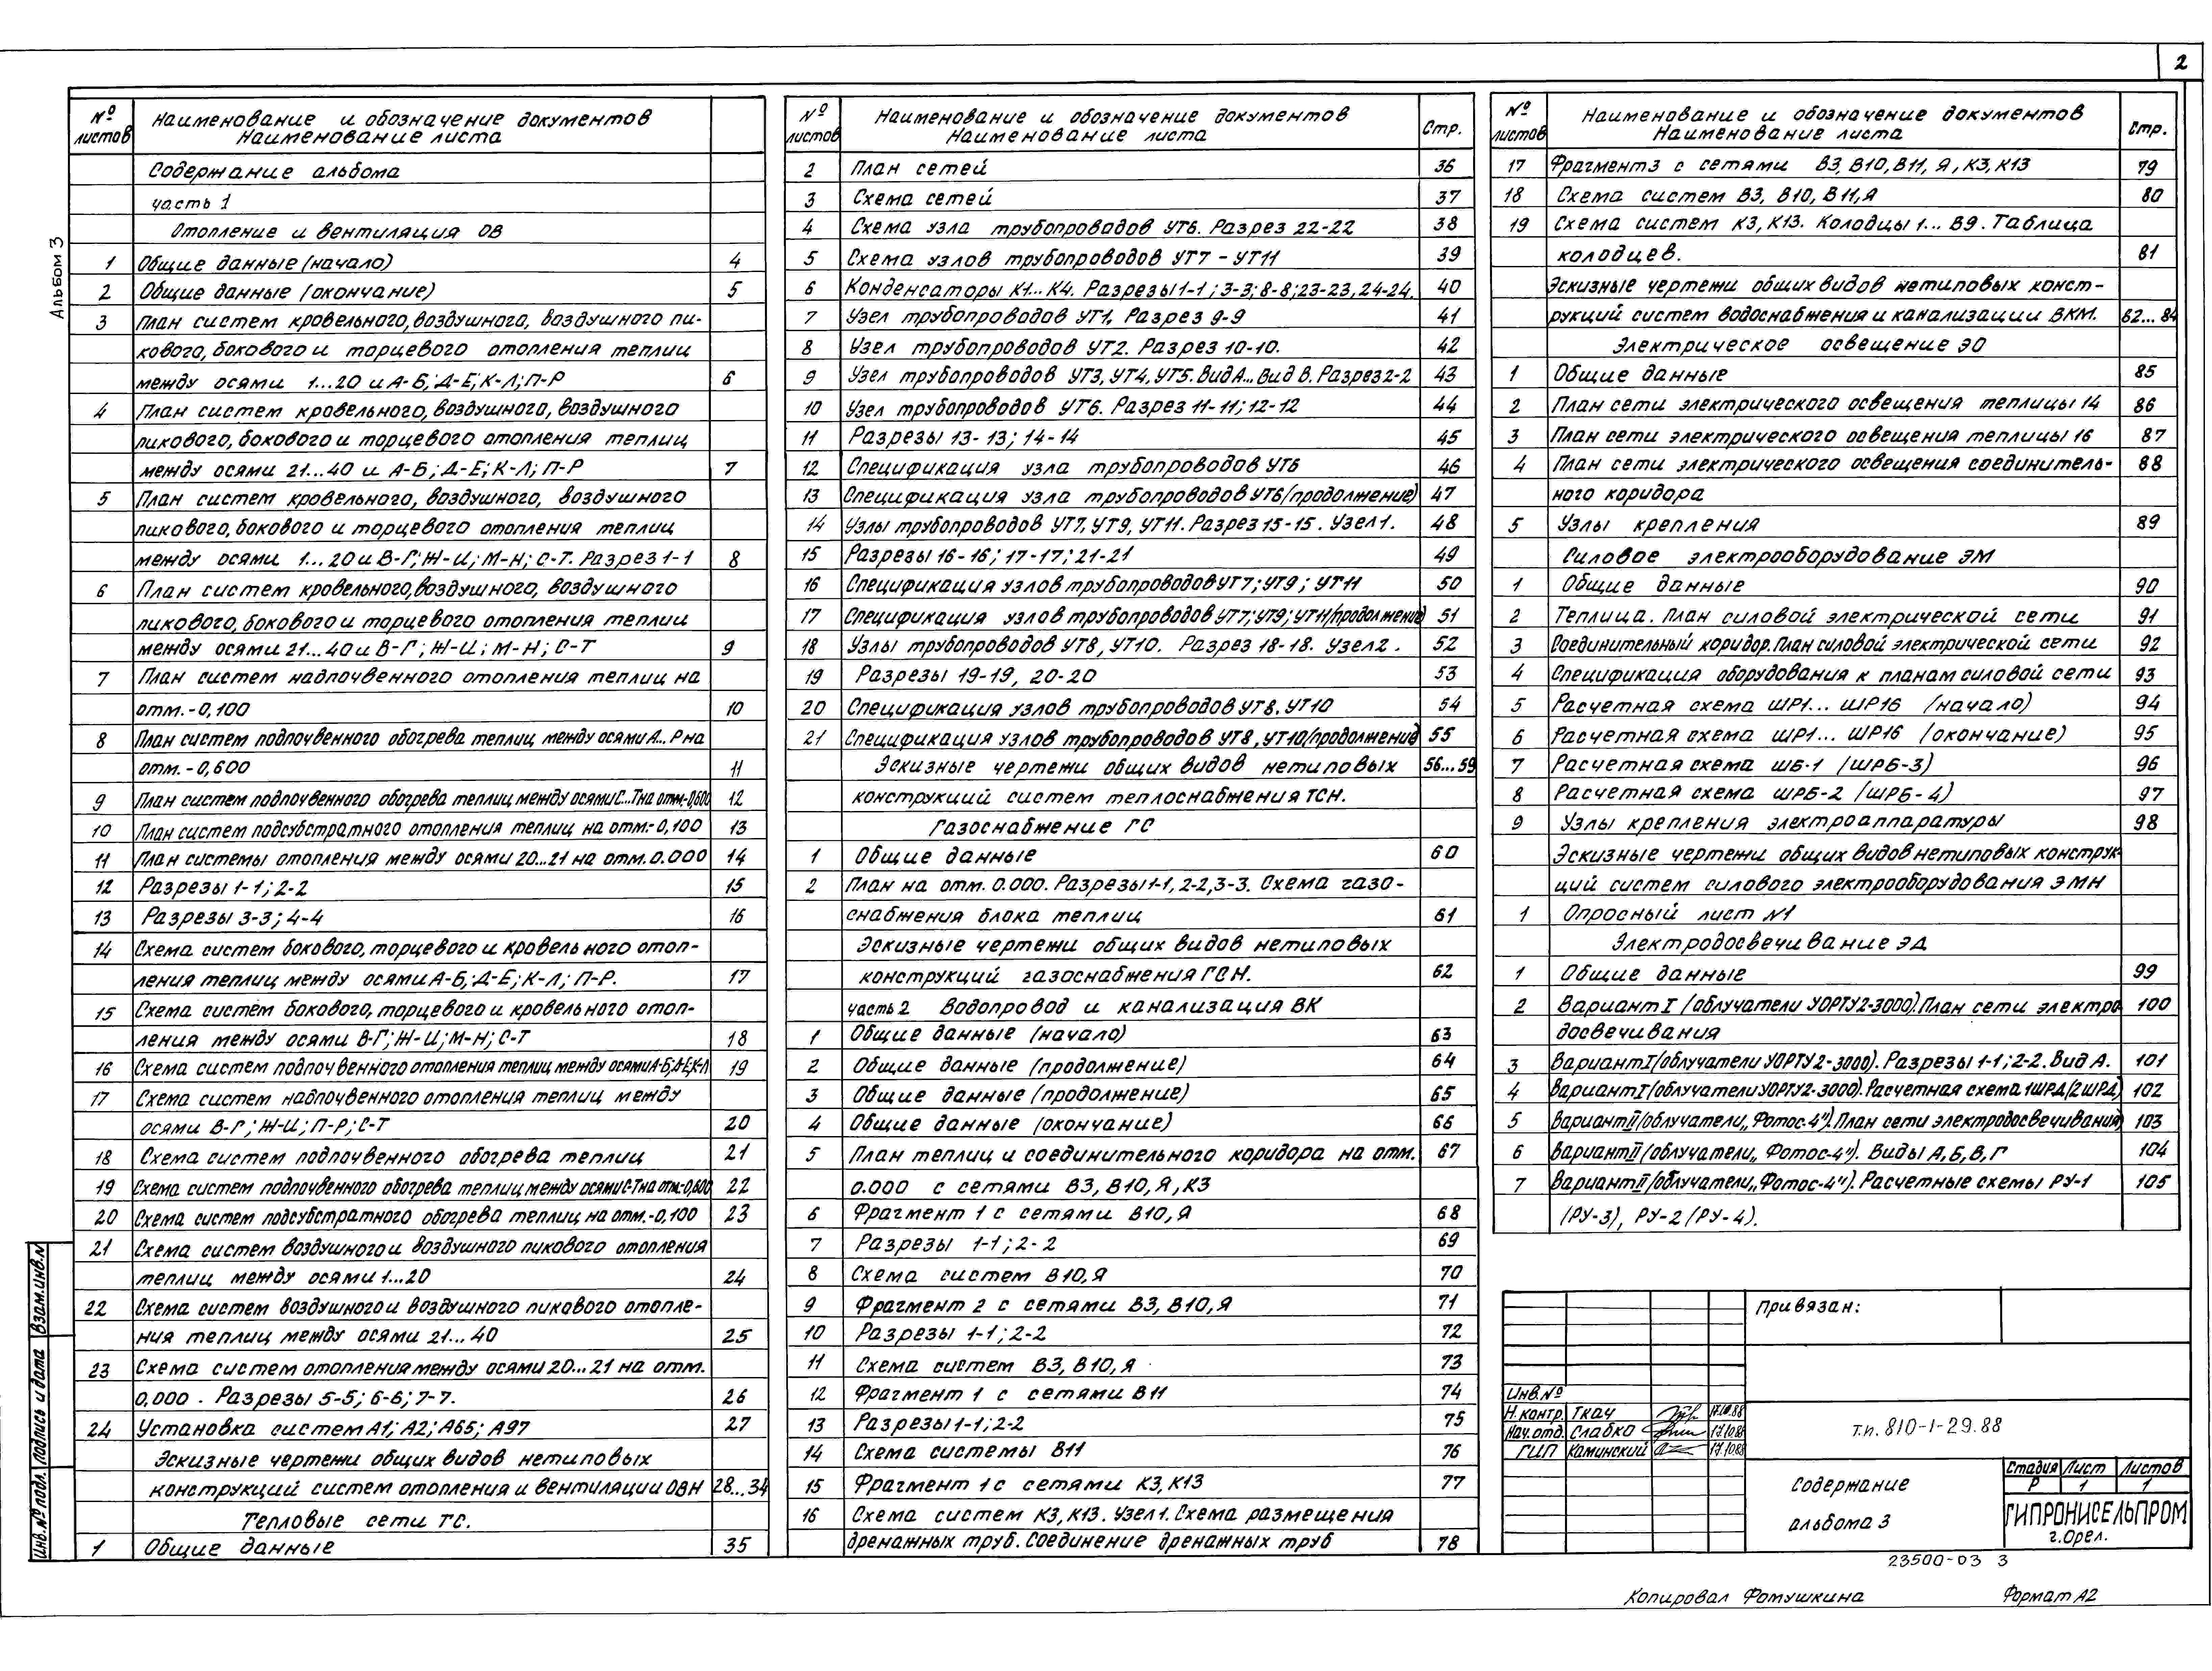 2
Альбом 3
№ листов
Наименование и обозначение документов
Наименование листа
Содержание альбома
часть 1
Отопление и вентиляция ОВ
1 Общие данные (начало) 4
2 Общие данные (окончание) 5
3 План систем кровельного, воздушного, воздушного пи-
кового, бокового и торцевого отопления теплиц
между осями 1...20 и А-Б; Д-Е; К-Л; П-Р 6
4 План систем кровельного, воздушного, воздушного
пикового, бокового и торцевого отопления теплиц
между осями 21...40 и А-Б; Д-Е; К-Л; П-Р 7
5 План систем кровельного, воздушного, воздушного
пикового, бокового и торцевого отопления теплиц
между осями 1...20 и В-Г; Ж-И; М-Н; С-Т. Разрез 1-1 8
6 План систем кровельного, воздушного, воздушного
пикового, бокового и торцевого отопления теплиц
между осями 21...40 и В-Г; Ж-И; М-Н; С-Т 9
7 План систем надпочвенного отопления теплиц на
отм. -0,100 10
8 План систем подпочвенного обогрева теплиц между осями А...Р на
отм. -0,600 11
9 План систем подпочвенного обогрева теплиц между осями С...Т на отм.-0,600 12
10 План систем подсубстратного отопления теплиц на отм.-0,100 13
11 План системы отопления между осями 20...21 на отм. 0.000 14
12 Разрезы 1-1; 2-2 15
13 Разрезы 3-3; 4-4 16
14 Схема систем бокового, торцевого и кровельного отоп-
ления теплиц между осями А-Б; Д-Е; К-Л; П-Р. 17
15 Схема систем бокового, торцевого и кровельного отоп-
ления между осями В-Г; Ж-И; М-Н; С-Т 18
16 Схема систем подпочвенного отопления теплиц между осями А-Б; Д-Е; К-Л 19
17 Схема систем надпочвенного отопления теплиц между
осями В-Г; Ж-И; П-Р; С-Т 20
18 Схема систем подпочвенного обогрева теплиц 21
19 Схема систем подпочвенного обогрева теплиц между осями С-Т на отм.-0,600 22
20 Схема систем подсубстратного обогрева теплиц на отм.-0,100 23
21 Схема систем воздушного и воздушного пикового отопления
теплиц между осями 1...20 24
22 Схема систем воздушного и воздушного пикового отопле-
ния теплиц между осями 21...40 25
23 Схема систем отопления между осями 20...21 на отм.
0,000. Разрезы 5-5; 6-6; 7-7. 26
24 Установка систем А1; А2; А65; А97 27
Эскизные чертежи общих видов нетиповых
конструкций систем отопления и вентиляции ОВН 28...34
Тепловые сети ТС.
1 Общие данные 35
№ листов
Наименование и обозначение документов
Наименование листа
Стр.
2 План сетей 36
3 Схема сетей 37
4 Схема узла трубопроводов УТ6. Разрез 22-22 38
5 Схема узлов трубопроводов УТ7 - УТ11 39
6 Конденсаторы К1...К4. Разрезы 1-1; 3-3; 8-8; 23-23, 24-24. 40
7 Узел трубопроводов УТ1. Разрез 9-9 41
8 Узел трубопроводов УТ2. Разрез 10-10. 42
9 Узел трубопроводов УТ3, УТ4, УТ5. Вид А... Вид В. Разрез 2-2 43
10 Узел трубопроводов УТ6. Разрез 11-11; 12-12 44
11 Разрезы 13-13; 14-14 45
12 Спецификация узла трубопроводов УТ6 46
13 Спецификация узла трубопроводов УТ6 (продолжение) 47
14 Узлы трубопроводов УТ7, УТ9, УТ11. Разрез 15-15. Узел 1. 48
15 Разрезы 16-16; 17-17; 21-21 49
16 Спецификация узлов трубопроводов УТ7; УТ9; УТ11 50
17 Спецификация узлов трубопроводов УТ7; УТ9; УТ11 (продолжение) 51
18 Узлы трубопроводов УТ8, УТ10. Разрез 18-18. Узел 2. 52
19 Разрезы 19-19, 20-20 53
20 Спецификация узлов трубопроводов УТ8, УТ10 54
21 Спецификация узлов трубопроводов УТ8, УТ10 (продолжение) 55
Эскизные чертежи общих видов нетиповых 56...59
конструкций систем теплоснабжения ТСН.
Газоснабжение ГС
1 Общие данные 60
2 План на отм. 0.000. Разрезы 1-1, 2-2, 3-3. Схема газо-
снабжения блока теплиц 61
Эскизные чертежи общих видов нетиповых
конструкций газоснабжения ГСН. 62
часть 2 Водопровод и канализация ВК
1 Общие данные (начало) 63
2 Общие данные (продолжение) 64
3 Общие данные (продолжение) 65
4 Общие данные (окончание) 66
5 План теплиц и соединительного коридора на отм. 67
0.000 с сетями В3, В10, Я, К3
6 Фрагмент 1 с сетями В10, Я 68
7 Разрезы 1-1; 2-2 69
8 Схема систем В10, Я 70
9 Фрагмент 2 с сетями В3, В10, Я 71
10 Разрезы 1-1; 2-2 72
11 Схема систем В3, В10, Я 73
12 Фрагмент 1 с сетями В11 74
13 Разрезы 1-1; 2-2 75
14 Схема системы В11 76
15 Фрагмент 1 с сетями К3, К13 77
16 Схема систем К3, К13. Узел 1. Схема размещения
дренажных труб. Соединение дренажных труб 78
№ листов
Наименование и обозначение документов
Наименование листа
Стр.
17 Фрагмент 3 с сетями В3, В10, В11, Я, К3, К13 79
18 Схема систем В3, В10, В11, Я 80
19 Схема систем К3, К13. Колодцы 1... В9. Таблица
колодцев. 81
Эскизные чертежи общих видов нетиповых конст-
рукций систем водоснабжения и канализации ВКМ. 82...84
Электрическое освещение ЭО
1 Общие данные 85
2 План сети электрического освещения теплицы 14 86
3 План сети электрического освещения теплицы 16 87
4 План сети электрического освещения соединитель- 88
ного коридора
5 Узлы крепления 89
Силовое электрооборудование ЭМ
1 Общие данные 90
2 Теплица. План силовой электрической сети 91
3 Соединительный коридор. План силовой электрической сети 92
4 Спецификация оборудования к планам силовой сети 93
5 Расчетная схема ШР1... ШР16 (начало) 94
6 Расчетная схема ШР1... ШР16 (окончание) 95
7 Расчетная схема ШБ-1 (ШРБ-3) 96
8 Расчетная схема ШРБ-2 (ШРБ-4) 97
9 Узлы крепления электроаппаратуры 98
Эскизные чертежи общих видов нетиповых конструк-
ций систем силового электрооборудования ЭМН
1 Опросный лист №1
Электродосвечивание ЭД
1 Общие данные 99
2 Вариант I (облучатели УОРТУ2-3000). План сети электро 100
досвечивания
3 Вариант I (облучатели УОРТУ2-3000). Разрезы 1-1; 2-2. Вид А. 101
4 Вариант I (облучатели УОРТУ2-3000). Расчетная схема 1ШРД (2ШРД) 102
5 Вариант II (облучатели „Фотос-4"). План сети электродосвечивания 103
6 Вариант II (облучатели „Фотос-4"). Виды А, Б, В, Г 104
7 Вариант II (облучатели „Фотос-4"). Расчетные схемы РУ-1 105
(РУ-3), РУ-2 (РУ-4).
Привязан:
Инв.№
Н.контр. Ткач 17.10.88
Нач.отд. Слабко 17.10.88
ГИП Каминский 17.10.88
т.п. 810-1-29.88
Содержание
альбома 3
Стадия Лист Листов
Р 1 1
ГИПРОНИСЕЛЬПРОМ
г. Орел.
23500-03 3
Копировал Фомушкина
Формат А2
Инв.№ подл. Подпись и дата Взам.инв.№